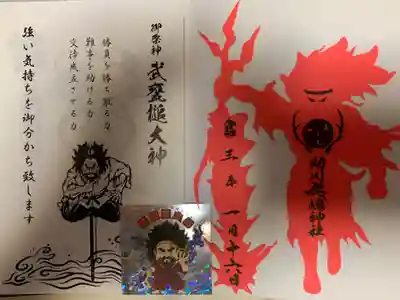 三年 一月十六日
御祭神 武甕槌大神
勝負を勝ち取る力
難事を助ける力
交渉成立させる力
強い気持ちを御分かち致します